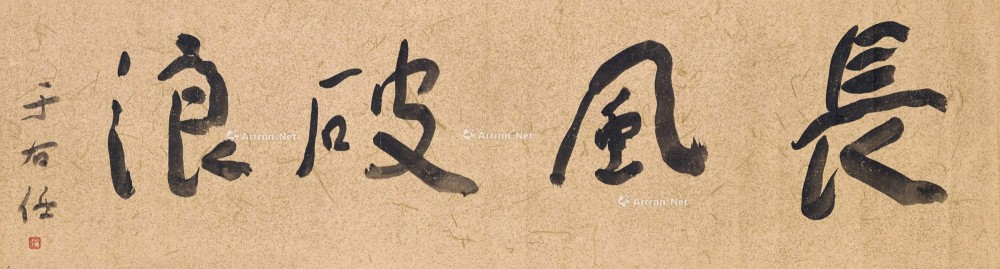 長風破浪
于右任
Artron.Net
Artron.Net
Artron.Net